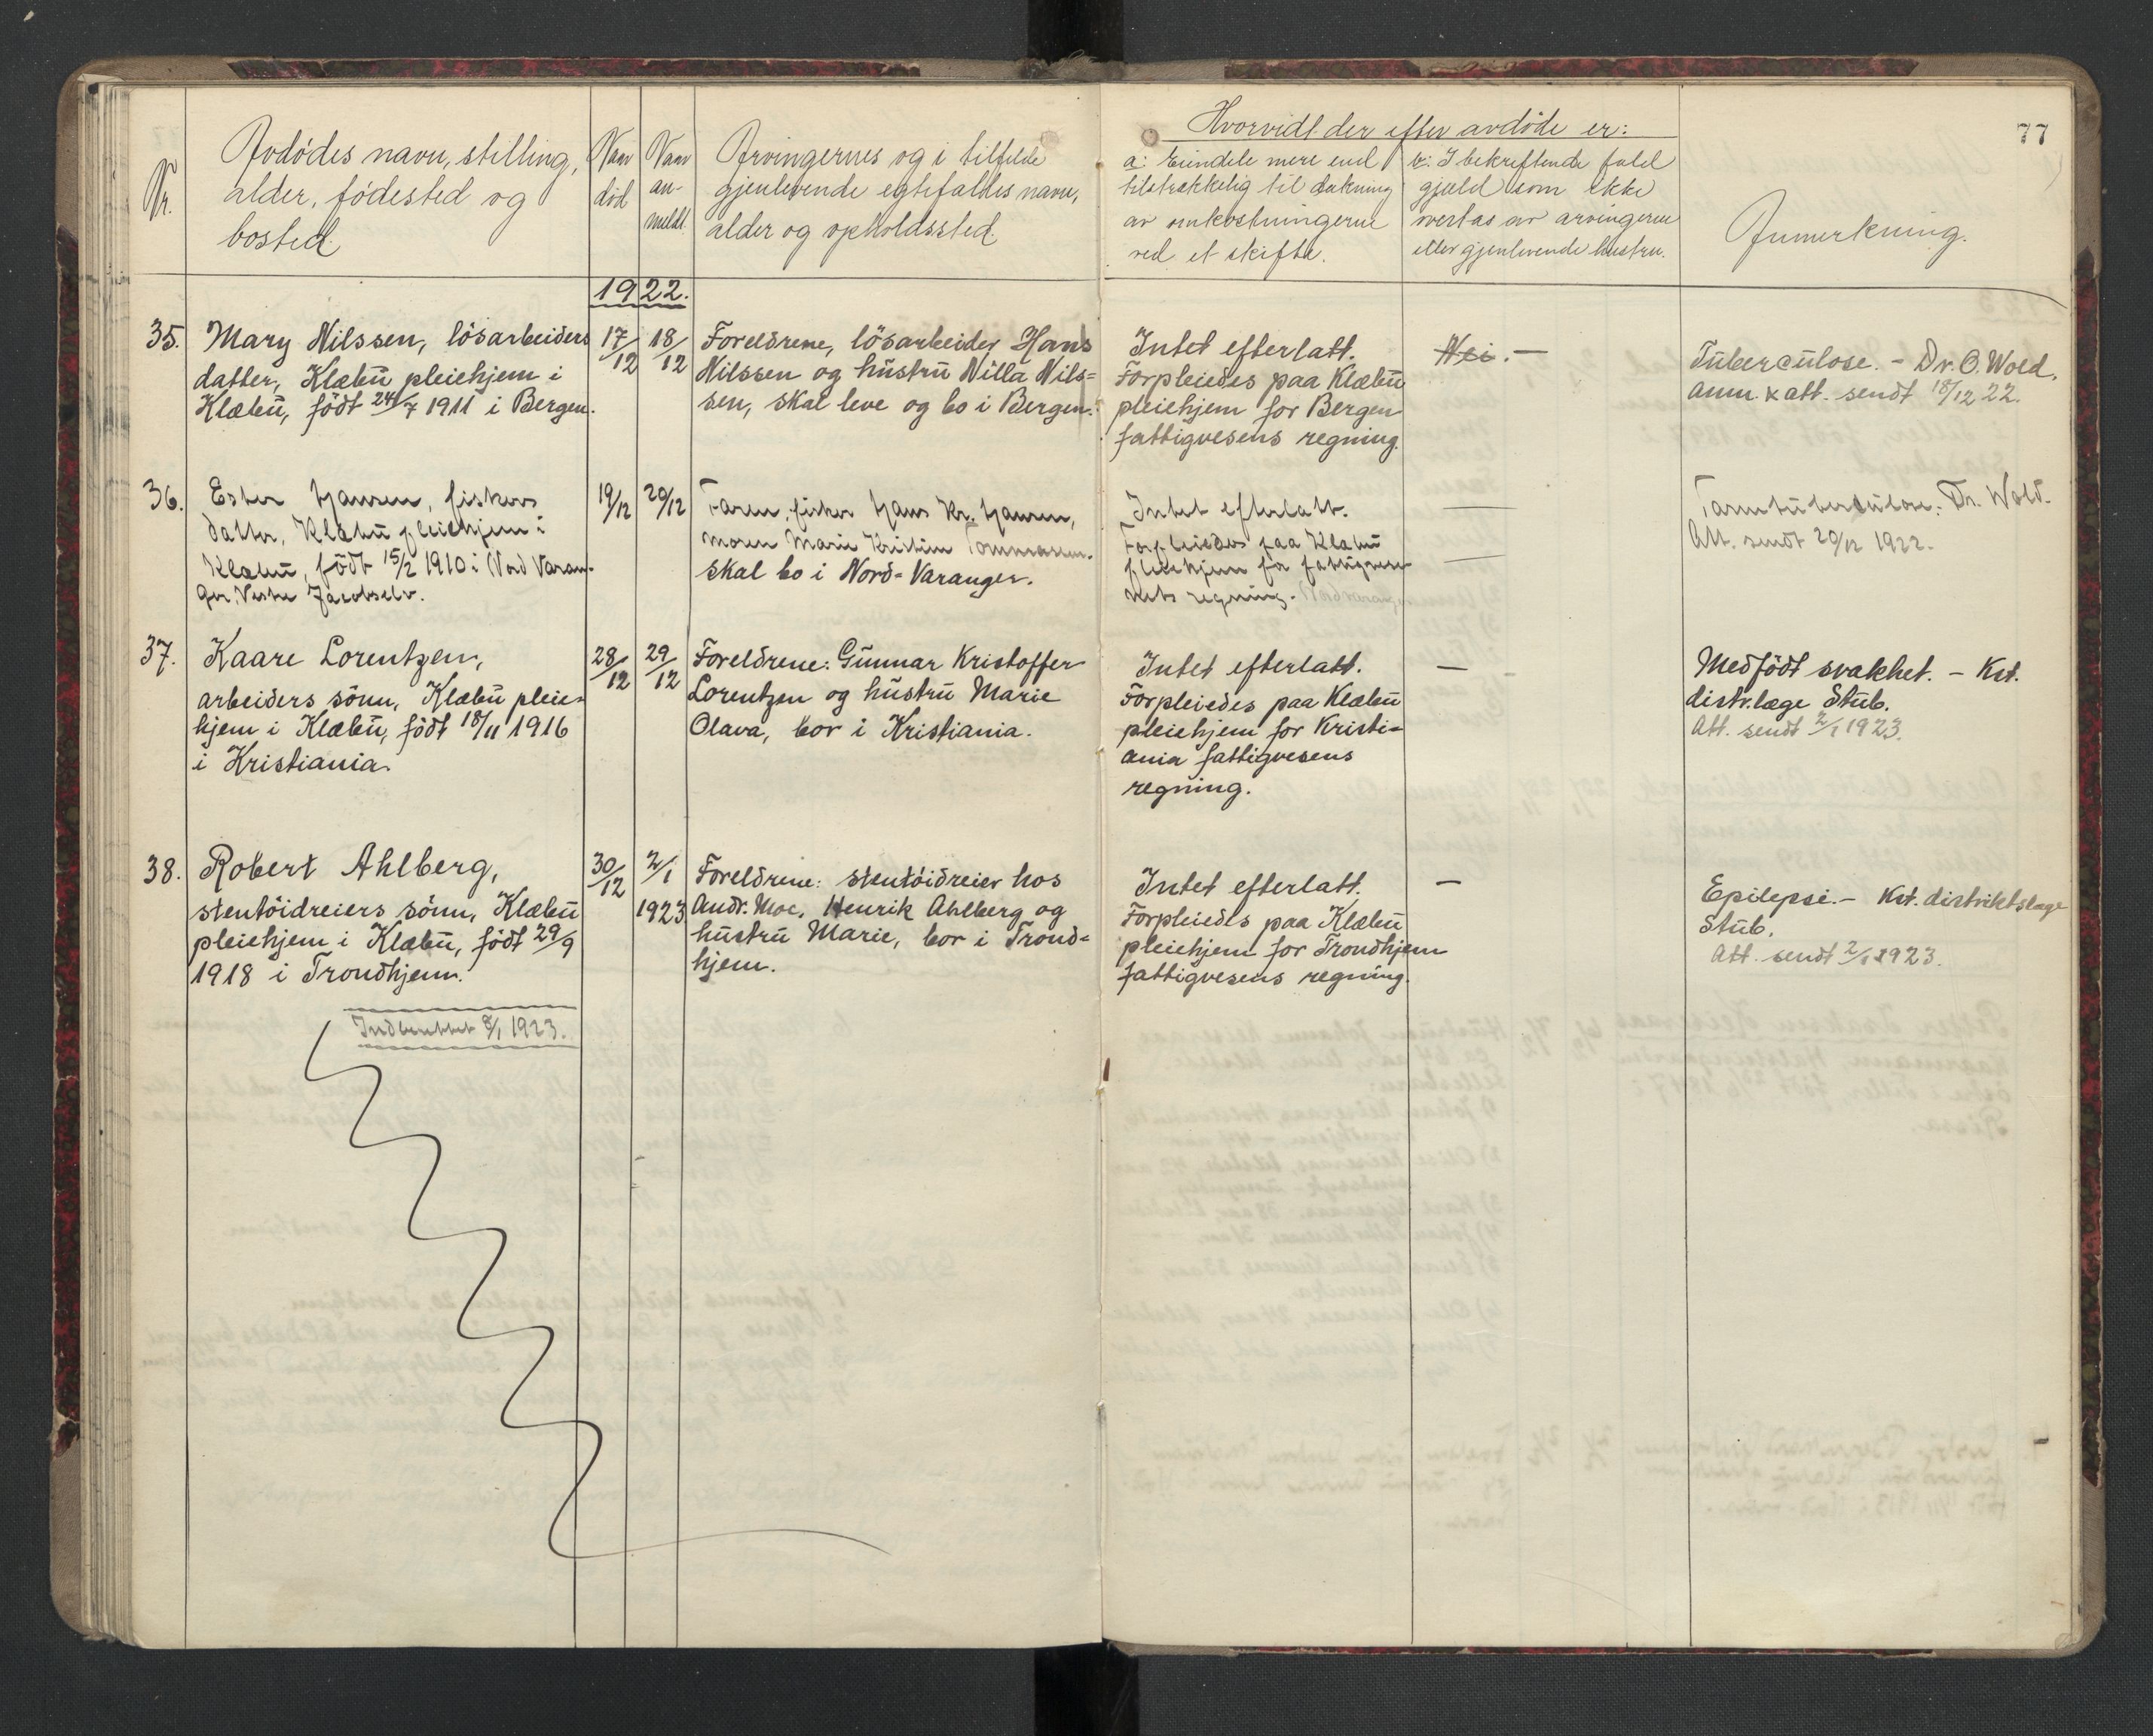 77
Nr.
Avdödes navn, stilling,
alder, födested og
bosted.
Naar
död
Naar
an-
meldt.
Arvingernes og i tilfelde
gjenlevende egtefælles navn,
alder og opholdssted.
Hvorvidt der efter avdöde er:
a: Eiendele mere end
tilstrækkelig til dækning
av omkostningerne
ved et skifte.
b: I bekreftende fald
gjæld som ikke
overtas av arvingerne
eller gjenlevende hustru.
Anmerkning.
1922.
35.
Mary Nilssen, lösarbeiders
datter, Klæbu pleiehjem i
Klæbu, födt 24/7 1911 i Bergen.
17/12
18/12
Foreldrene, lösarbeider Hans
Nilssen og hustru Nilla Nils=
sen, skal leve og bo i Bergen.
Intet efterlatt.
Forpleiedes paa Klæbu
pleiehjem for Bergen
fattigvesens regning.
Nei. —
Tuberculose. - Dr. O. Wold.
Anm. & att. sendt 18/12 22.
36.
Ester Hansen, fiskers
datter, Klæbu pleiehjem i
Klæbu, födt 15/2 1910 i Nord Varan-
ger, Vestre Jacobselv.
19/12
20/12
Faren, fisker Hans Kr. Hansen,
moren Marie Kristine Tommasen.
Skal bo i Nord=Varanger.
Intet efterlatt.
Forpleiedes paa Klæbu
pleiehjem for fattigvese-
nets regning. Nordvaranger
—
—
Tarmtuberculose. Dr. Wold.
Att. sendt 20/12 1922.
37.
Kaare Lorentzen,
arbeiders sönn, Klæbu pleie=
hjem i Klæbu, födt 18/11 1916
i Kristiania.
28/12
29/12
Foreldrene: Gunnar Kristoffer
Lorentzen og hustru Marie
Olava, bor i Kristiania.
Intet efterlatt.
Forpleiedes paa Klæbu
pleiehjem for Kristi=
ania fattigvesens
regning.
—
Medfödt svakhet. - Kst.
distr.læge Stub.
Att. sendt 2/1 1923.
38.
Robert Ahlberg,
stentöidreiers sönn, Klæbu
pleiehjem i Klæbu, födt 29/9
1918 i Trondhjem.
30/12
2/1
1923
Foreldrene: stentöidreier hos
Andr. Moe, Henrik Ahlberg og
hustru Marie, bor i Trond=
hjem.
Intet efterlatt.
Forpleiedes paa Klæbu
pleiehjem for Trondhjem
fattigvesens regning.
—
Epilepsi. - Kst. distriktslæge
Stub.
Att. sendt 2/1 1923.
Indberettet 8/1 1923.